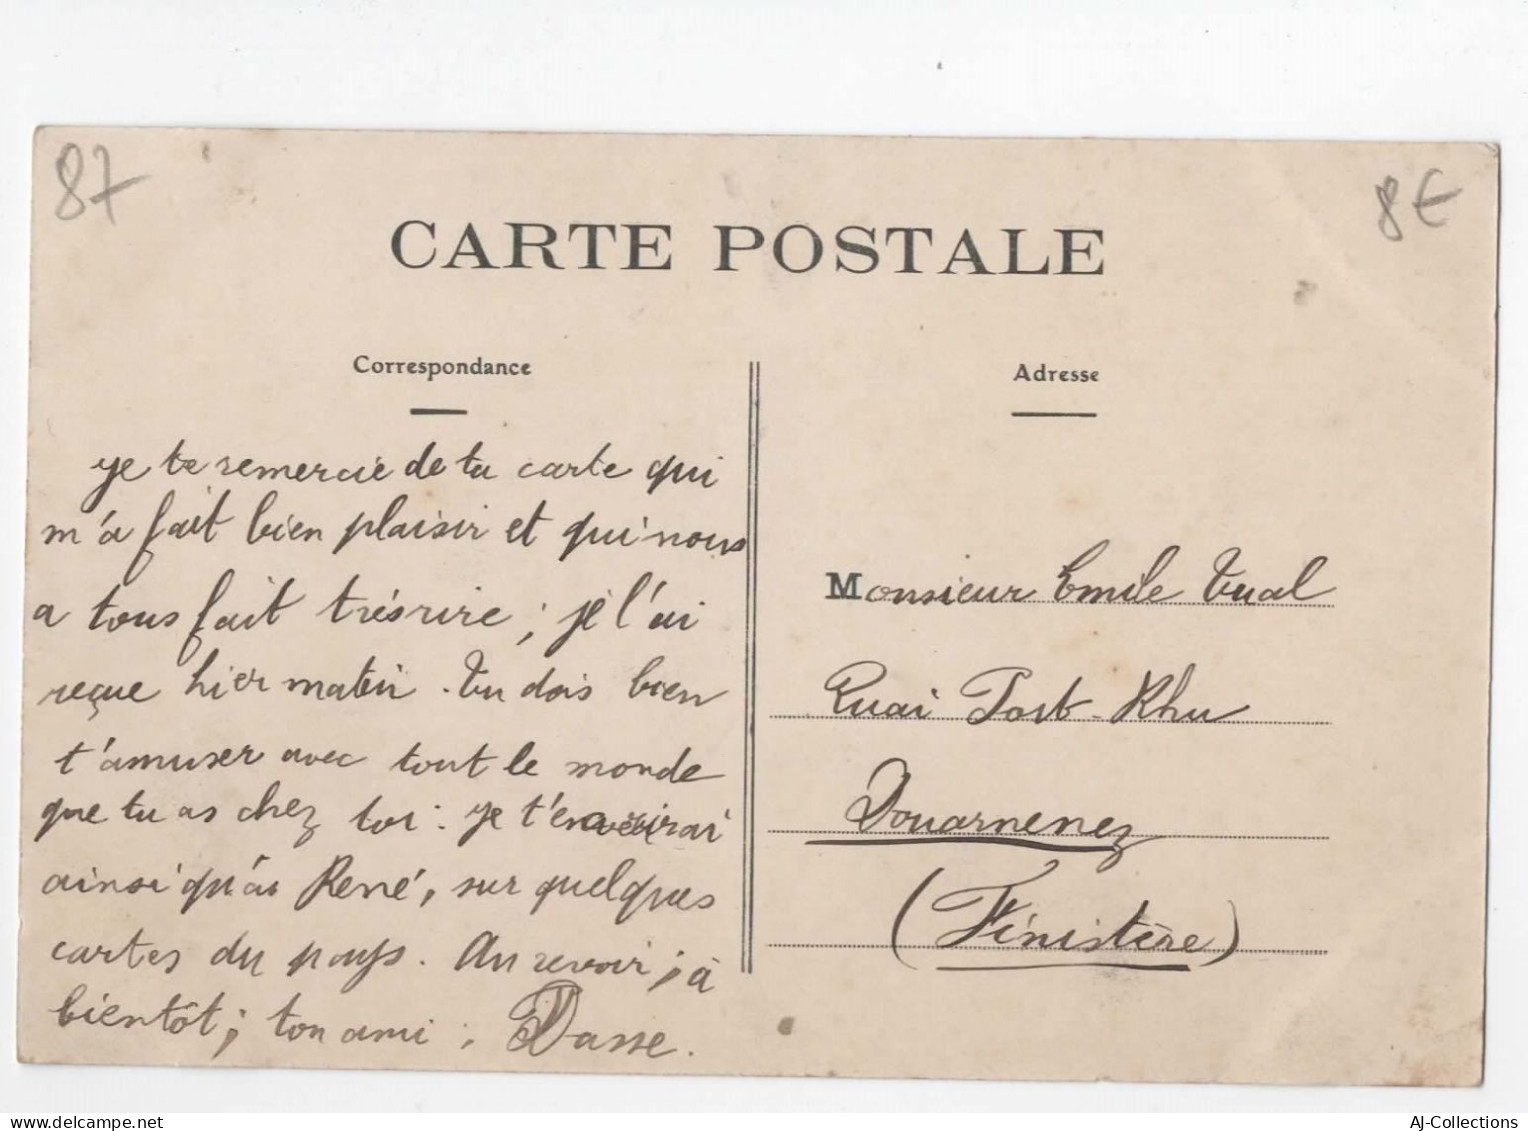 87
8€
CARTE POSTALE
Correspondance
Adresse
Je te remercie de ta carte qui
m'a fait bien plaisir et qui nous
a tous fait très rire ; je l'ai
reçue hier matin. Tu dois bien
t'amuser avec tout le monde
que tu as chez toi. Je t'enverirai
ainsi qu'à René, sur quelques
cartes du pays. Au revoir ; à
bientôt ; ton ami : Dasse.
Monsieur Emile Tual
Quai Port-Rhu
Douarnenez
(Finistère)
AJ-Collections